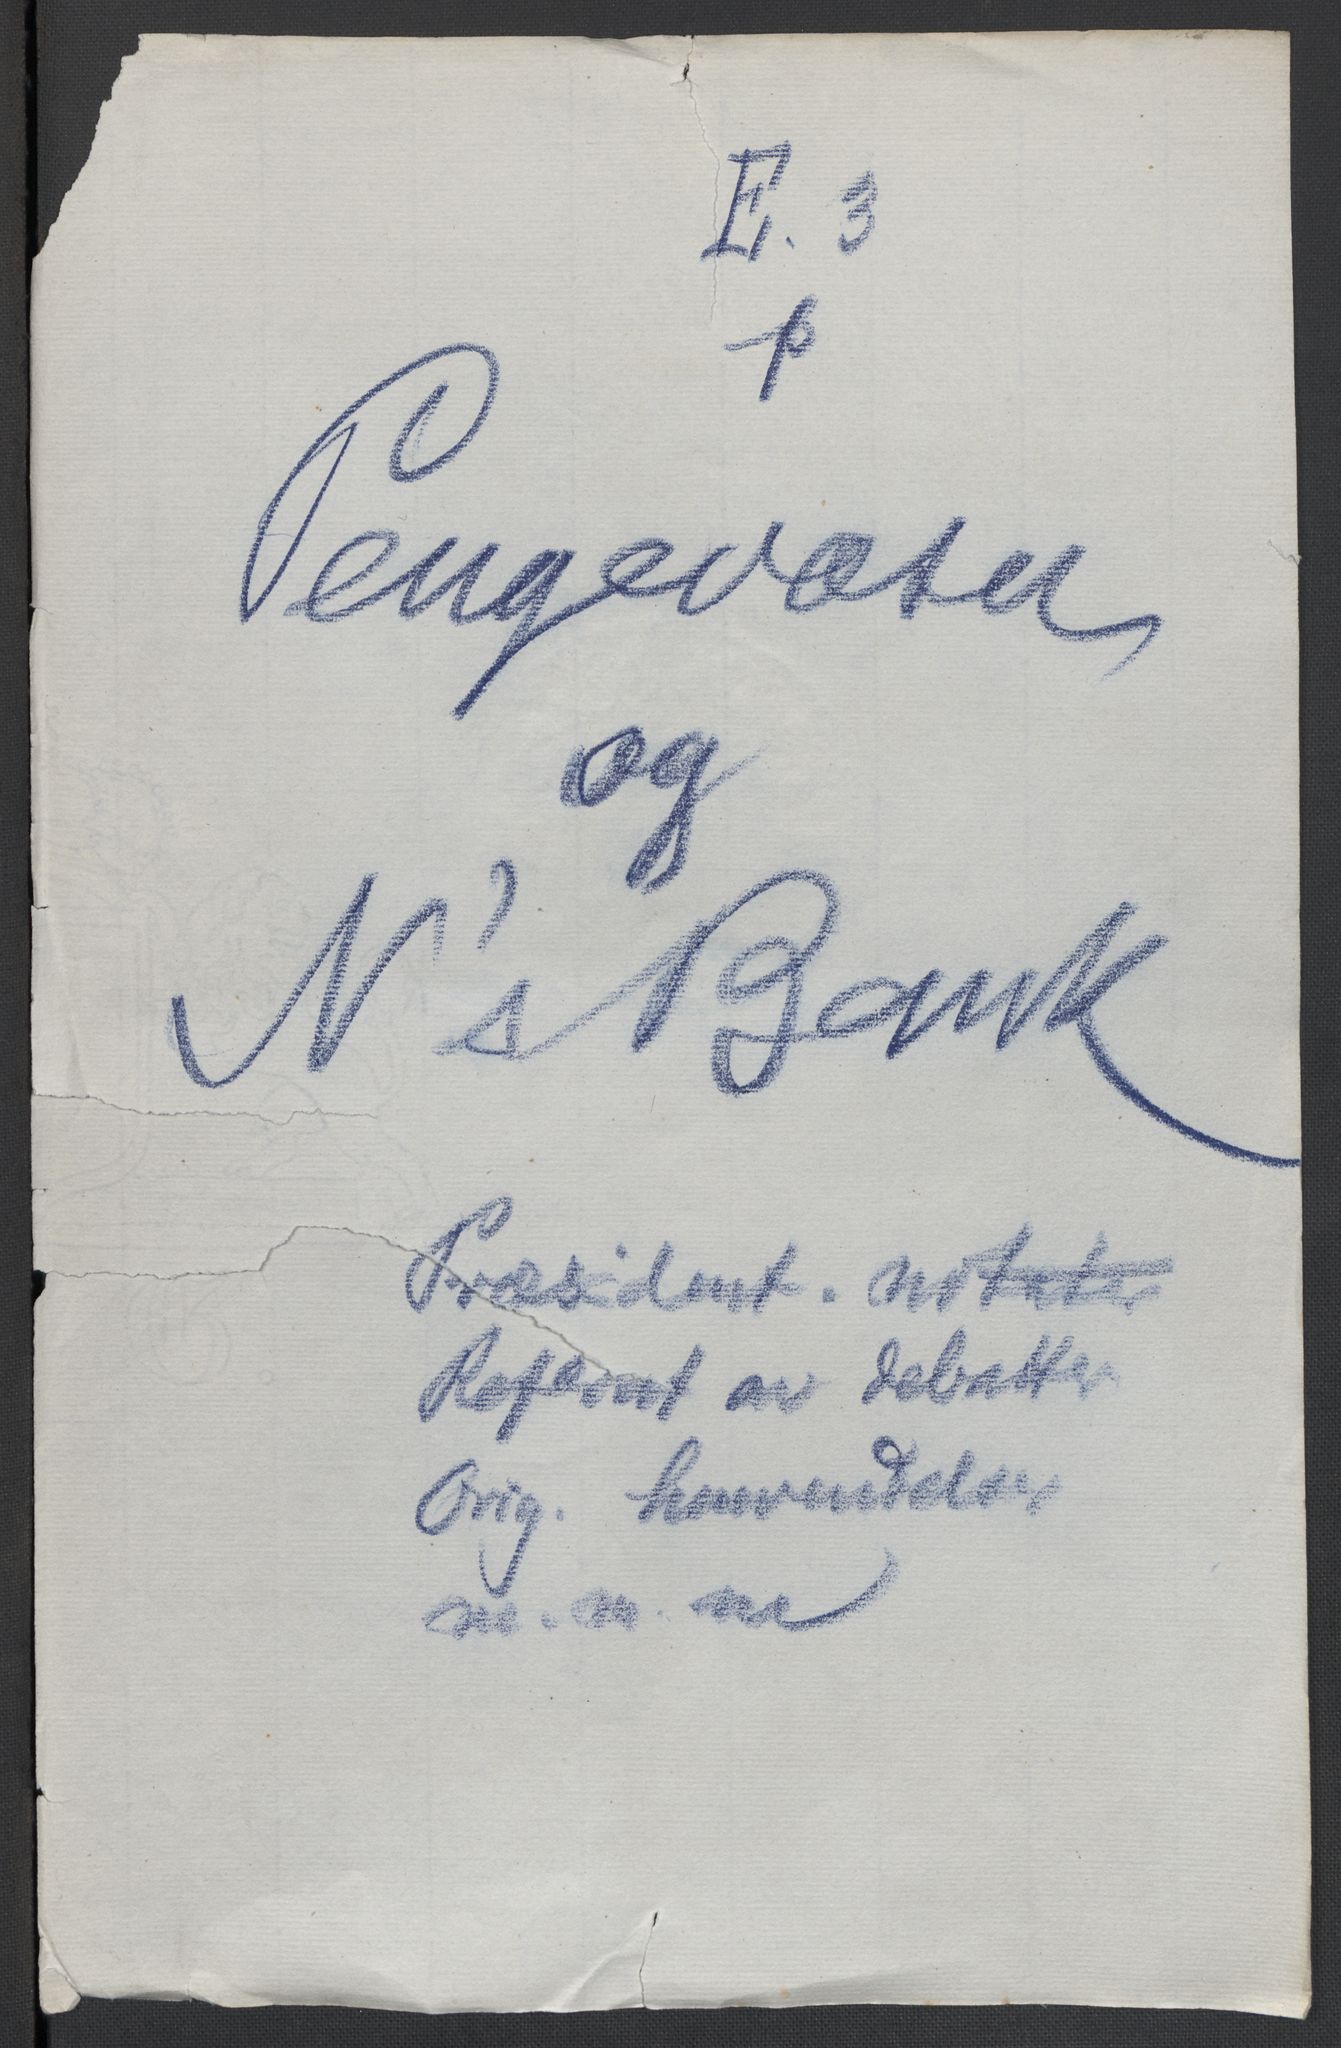 E. 3
p
Pengevæsen
og
N's Bank
Præsident. notater
Referat av debatter
Orig. henvendelser
m. m. m